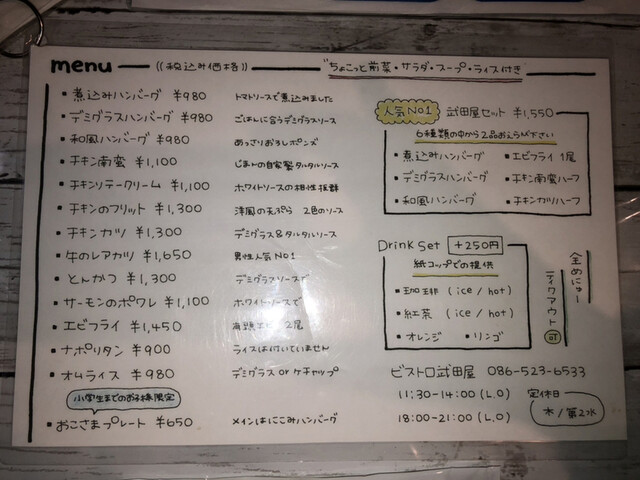 menu ((税込み価格))
"ちょこっと前菜・サラダ・スープ・ライス付き
・煮込みハンバーグ ¥980 トマトソースで煮込みました
・デミグラスハンバーグ ¥980 ごはんに合うデミグラスソース
・和風ハンバーグ ¥980 あっさりおろしポンズ
・チキン南蛮 ¥1,100 じまんの自家製タルタルソース
・チキンソテークリーム ¥1,100 ホワイトソースの相性抜群
・チキンのフリット ¥1,300 洋風の天ぷら 2色のソース
・チキンカツ ¥1,300 デミグラス&タルタルソース
・牛のレアカツ ¥1,650 男性人気No1
・とんかつ ¥1,300 デミグラスソースで
・サーモンのポワレ ¥1,100 ホワイトソースで
・エビフライ ¥1,450 エビ 2尾
・ナポリタン ¥900 ライスは付いていません
・オムライス ¥980 デミグラス or ケチャップ
小学生までのお子様限定
・おこさまプレート ¥650 メインはにこみハンバーグ
人気No1 武田屋セット ¥1,550
6種類の中から2品おえらび下さい
・煮込みハンバーグ ・エビフライ 1尾
・デミグラスハンバーグ ・チキン南蛮ハーフ
・和風ハンバーグ ・チキンカツハーフ
Drink Set +250円
紙コップでの提供
・珈琲 (ice / hot)
・紅茶 (ice / hot)
・オレンジ ・リンゴ
全めにゅー
テイクアウト
OK
ビストロ武田屋 086-523-6533
11:30-14:00 (L.O)
18:00-21:00 (L.O)
定休日
木 / 第2水